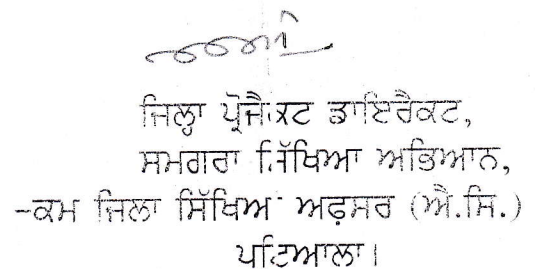 ਜਿਲ੍ਹਾ ਪ੍ਰੋਜੈਕਟ ਡਾਇਰੈਕਟ,
ਸਮਗਰਾ ਸਿੱਖਿਆ ਅਭਿਆਨ,
-ਕਮ ਜਿਲਾ ਸਿੱਖਿਆ ਅਫ਼ਸਰ (ਐ.ਸਿ.)
ਪਟਿਆਲਾ।